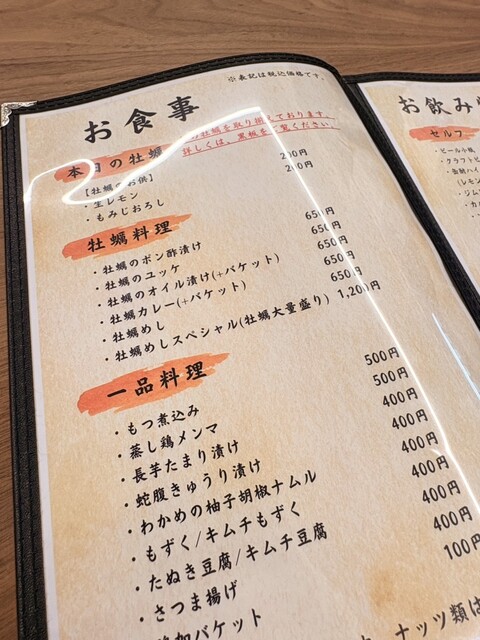 ※表記は税込価格です。
お食事
の牡蠣を取り揃えております。
詳しくは、黒板をご覧ください。
本日の牡蠣
【牡蠣のお供】
・生レモン 200円
・もみじおろし 200円
牡蠣料理
・牡蠣のポン酢漬け 650円
・牡蠣のユッケ 650円
・牡蠣のオイル漬け(+バケット) 650円
・牡蠣カレー(+バケット) 650円
・牡蠣めし 650円
・牡蠣めしスペシャル(牡蠣大量盛り) 1,200円
一品料理
・もつ煮込み 500円
・蒸し鶏メンマ 500円
・長芋たまり漬け 400円
・蛇腹きゅうり漬け 400円
・わかめの柚子胡椒ナムル 400円
・もずく/キムチもずく 400円
・たぬき豆腐/キムチ豆腐 400円
・さつま揚げ 400円
追加バケット 100円
ナッツ類は
お飲み
セルフ
・ビール小瓶
・クラフトビ
・缶酎ハイ
(レモン
・ジム
・カル